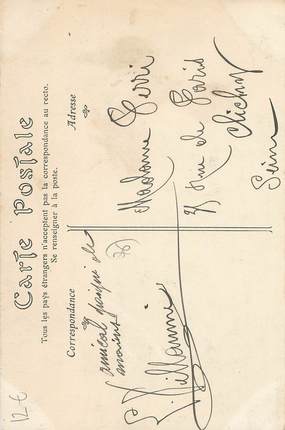 Carte Postale
Tous les pays étrangers n'acceptent pas la correspondance au recto.
Se renseigner à la poste.
Correspondance
Adresse
amical
mains
Villaumi
Madame
rue de Paris
Clichy
Seine
12 €